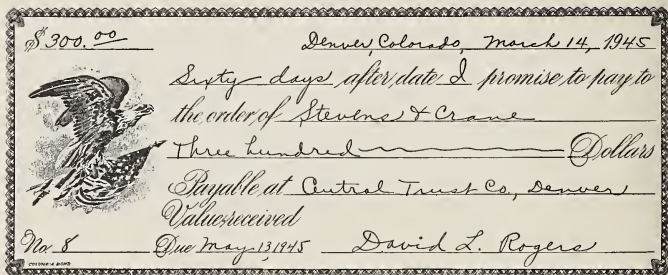 $300.00 Denver, Colorado, March 14, 1945
Sixty days after date I promise to pay to
the order of Stevens & Crane
Three hundred Dollars
Payable at Central Trust Co., Denver
Value received
No. 8 Due May 13, 1945 David L. Rogers